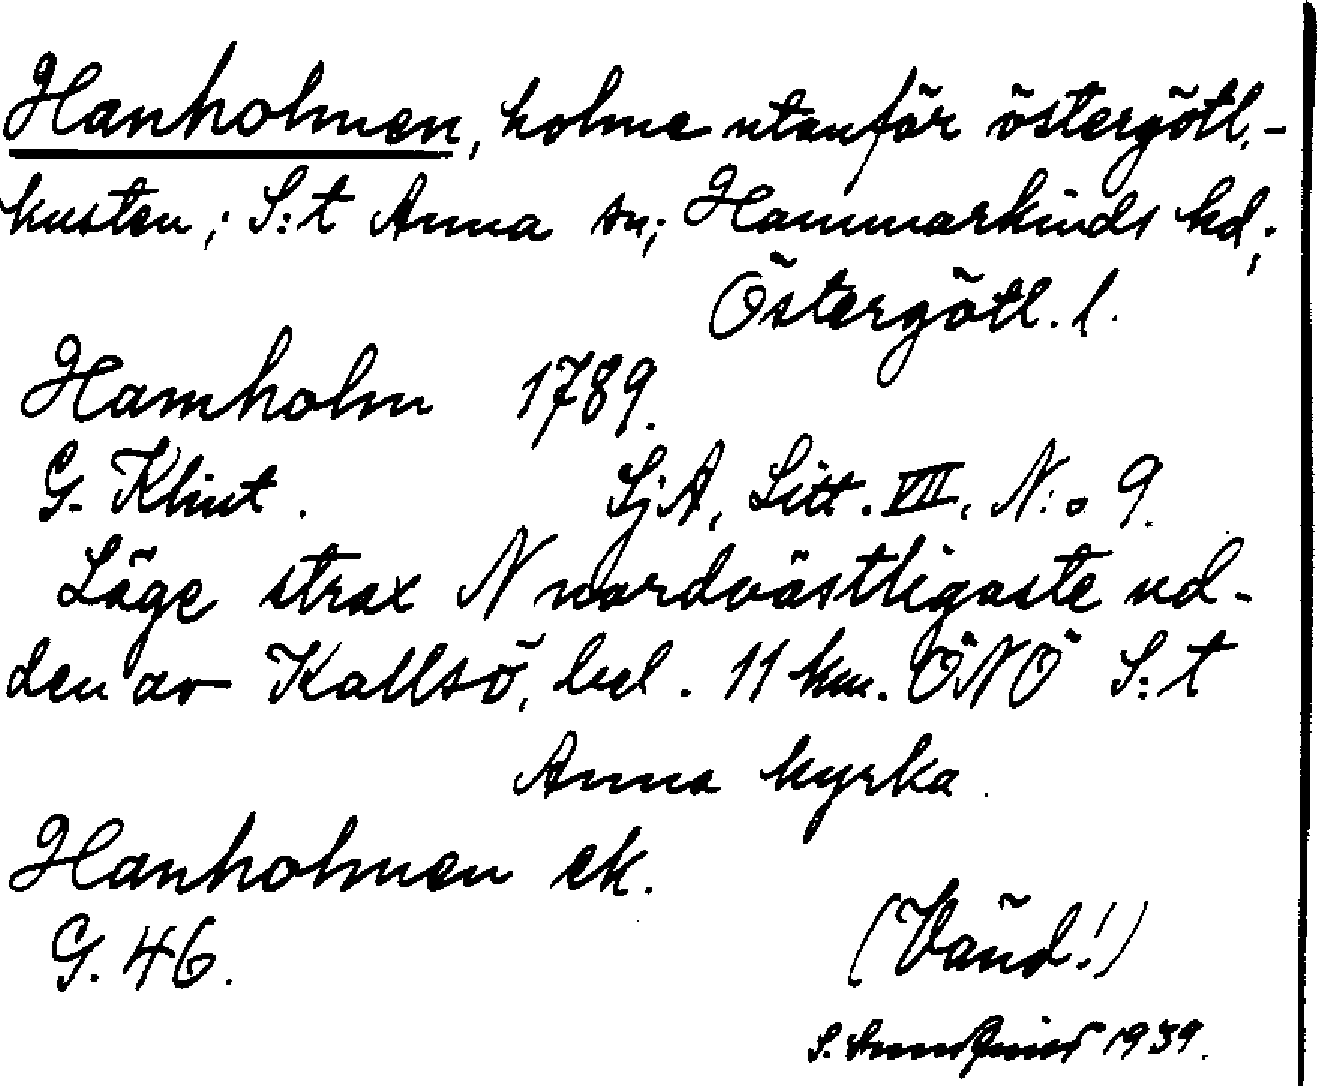 Hanholmen, holme utanför östergötl.-
kusten; S:t Anna sn; Hammarkinds hd;
Östergötl. l.
Hamholm 1789.
G. Klint. SjA, Litt. VII. N:o 9.
Läge strax N nordvästligaste ud-
den av Kallsö, bel. 11 km. ÖNÖ S:t
Anna kyrka.
Hanholmen ek.
G. 46.
(Vänd!)
S. 1939.